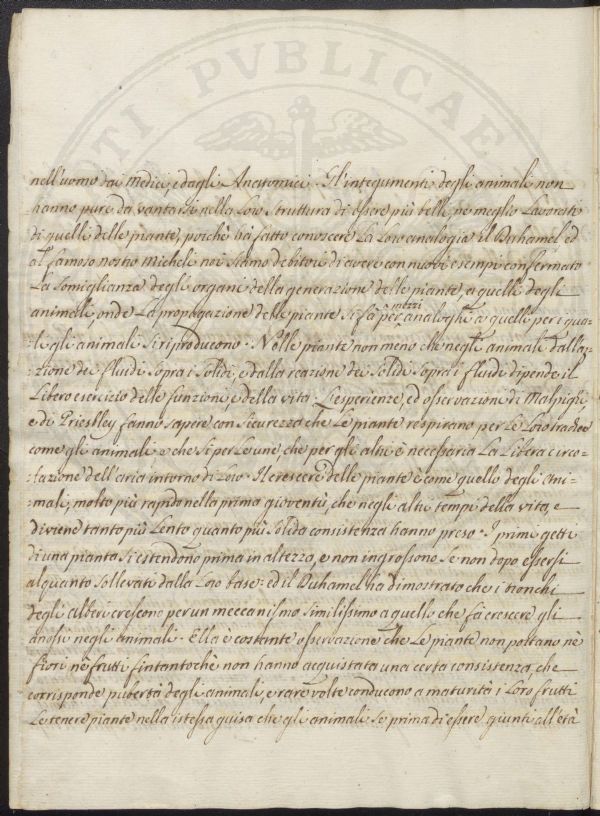 OTI PVBLICAE
nell'uomo dai Medici, e dagli Anatomici. Gl'integumenti degli animali non
hanno pure da vantarsi nella Loro Struttura di essere più belli, ne meglio Lavorati
di quelli delle piante, perchè ha fatto conoscere La Loro analogia il Duhamel, ed
al famoso nostro Micheli noi siamo debitori di avere con nuovi esempi confermato
La Somiglianza degli organi della generazione delle piante, a quelli degli
animali, onde La propagazione delle piante si fa per mezzi analoghi a quelli per i qua=
=li gli animali si riproducono. Nelle piante non meno che negli animali dall'a=
zione dei fluidi Sopra i Solidi, e dalla reazione dei Solidi Sopra i fluidi dipende il
Libero esercizio delle funzioni, e della vita. L'esperienze, ed osservazioni di Malpighi
e di Priestley fanno sapere con Sicurezza che Le piante respirano per Le Loro trachee
come gli animali, e che Si per Le une, che per gli altri è necessaria La Libera circo=
=lazione dell'aria intorno di Loro. Il crescere delle piante è come quello degli Ani=
=mali, molto più rapido nella prima gioventù, che negli altri tempi della vita, e
diviene tanto più Lento quanto più Solida consistenza hanno preso. I primi getti
di una pianta Si estendono prima in altezza, e non ingrossono Se non dopo essersi
alquanto Sollevati dalla Loro base: ed il Duhamel ha dimostrato che i tronchi
degli alberi crescono per un meccanismo Similissimo a quello che fa crescere gli
ossi negli Animali. Ella è costante osservazione che Le piante non portano nè
fiori nè frutti fintantochè non hanno acquistata una certa consistenza, che
corrisponde pubertà degli animali, e rare volte conducono a maturità i Loro frutti
Le tenere piante nella istessa guisa che gli animali Se prima di essere giunti all'età